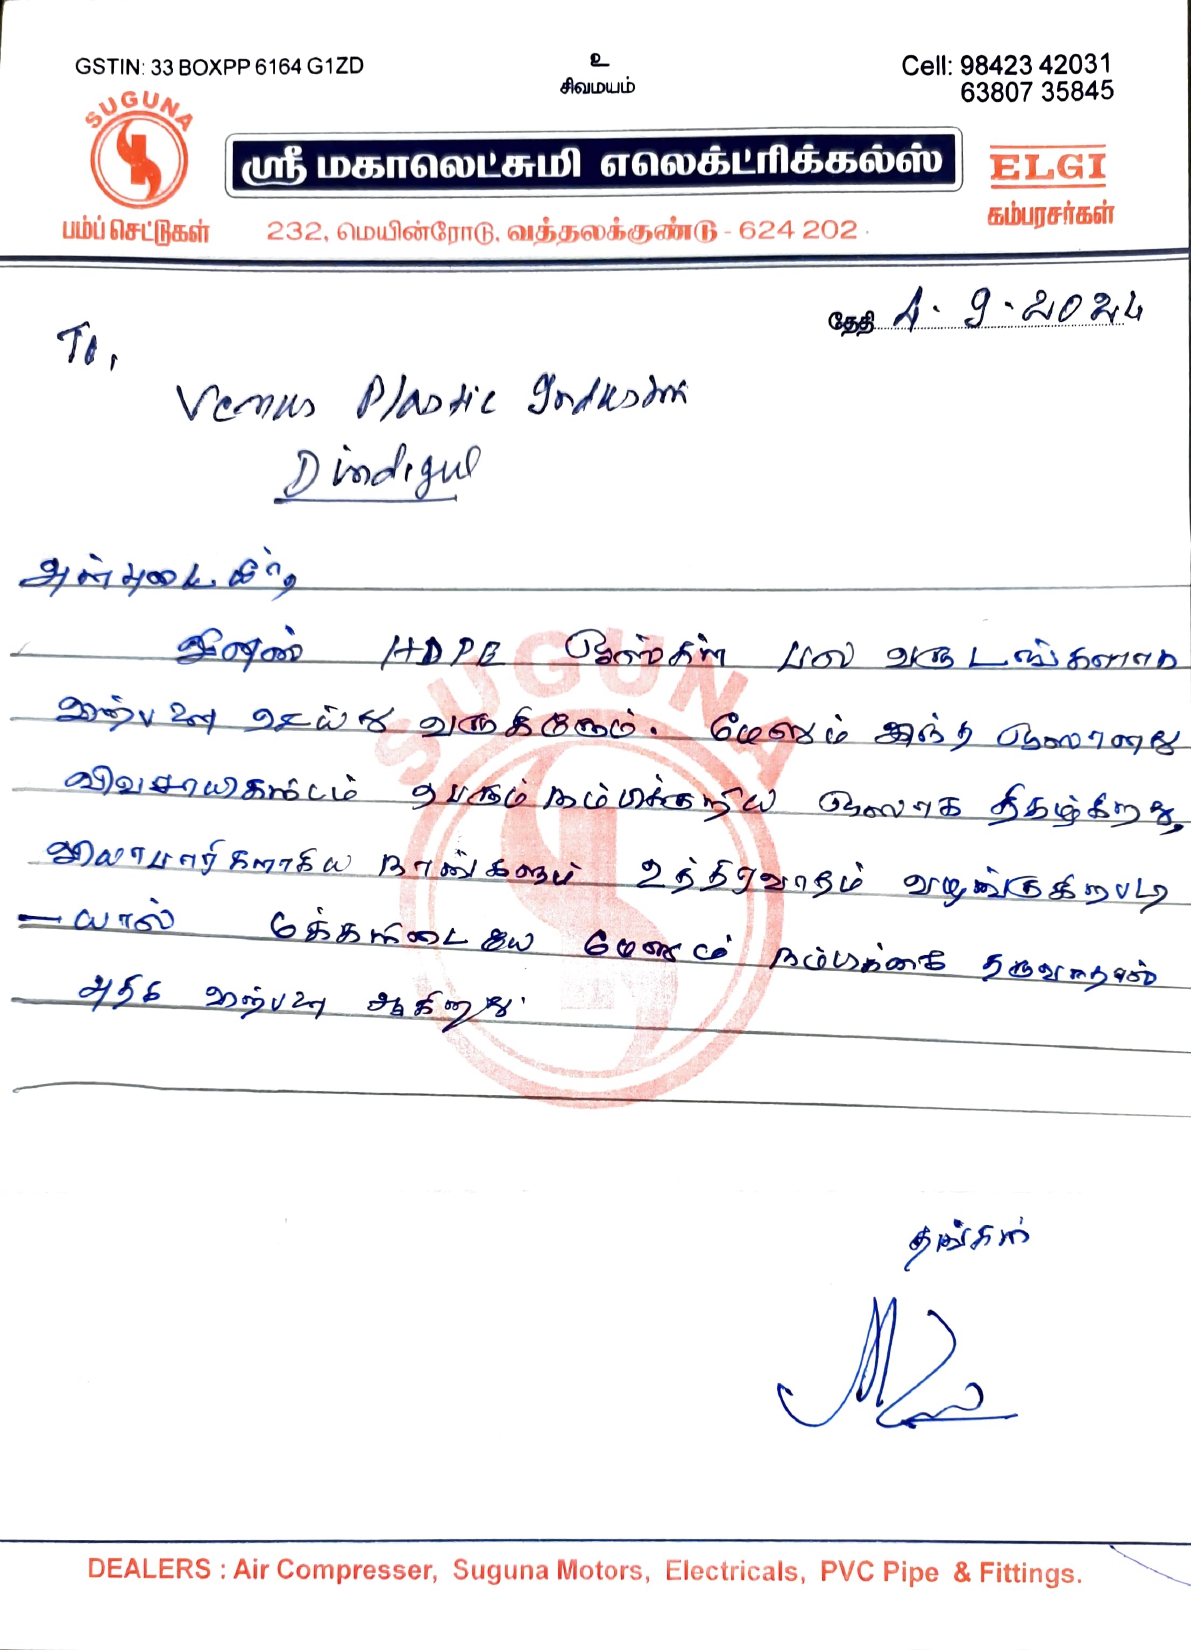 GSTIN: 33 BOXPP 6164 G1ZD
உ
சிவமயம்
Cell: 98423 42031
63807 35845
SUGUNA
பம்ப் செட்டுகள்
ஸ்ரீ மகாலெட்சுமி எலெக்ட்ரிக்கல்ஸ்
ELGI
கம்பரசர்கள்
232, மெயின்ரோடு, வத்தலக்குண்டு - 624 202
தேதி 4.9.2024
To,
Venus Plastic
Dindigul
HDPE பல வருடங்களாக
விற்பனை செய்து வருகிறோம். மேலும் இந்த
விவசாயிகளிடம் பெரும் நம்பிக்கைக்குரிய திகழ்கிறது,
நாங்களும் உத்திரவாதம்
மக்களிடையே மேலும் நம்பிக்கை தருவதால்
அதிக விற்பனை ஆகிறது.
SUGUNA
தங்கள்
DEALERS : Air Compresser, Suguna Motors, Electricals, PVC Pipe & Fittings.